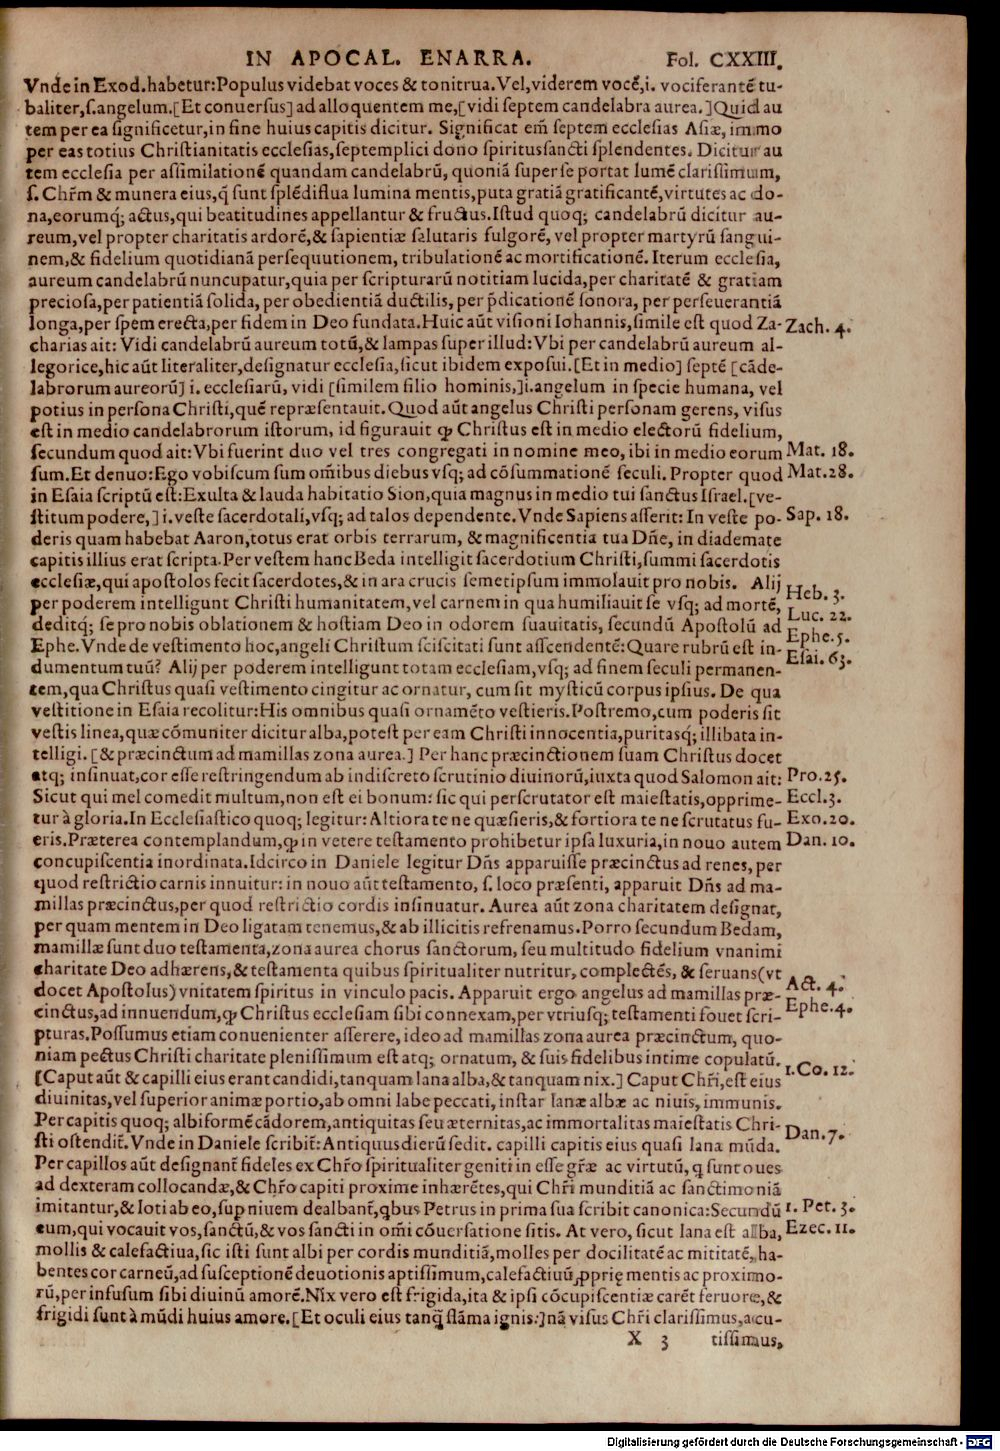 IN APOCAL. ENARRA. Fol. CXXIII.
Vnde in Exod. habetur: Populus videbat voces & tonitrua. Vel, viderem vocē, i. vociferantē tu-
baliter, ſ. angelum. [Et conuerſus] ad alloquentem me, [vidi ſeptem candelabra aurea.] Quid au
tem per ea ſignificetur, in fine huius capitis dicitur. Significat em̄ ſeptem eccleſias Aſiæ, immo
per eas totius Chriſtianitatis eccleſias, ſeptemplici dono ſpirituſſancti ſplendentes. Dicitur au
tem eccleſia per aſſimilationē quandam candelabrū, quoniā ſuper ſe portat lumē clariſſimum,
ſ. Chr̄m & munera eius, q̄ ſunt ſplēdiflua lumina mentis, puta gratiā gratificantē, virtutes ac do-
na, eorumq́; actus, qui beatitudines appellantur & fructus. Iſtud quoq; candelabrū dicitur au-
reum, vel propter charitatis ardorē, & ſapientiæ ſalutaris fulgorē, vel propter martyrū ſangui-
nem, & fidelium quotidianā perſequutionem, tribulationē ac mortificationē. Iterum eccleſia,
aureum candelabrū nuncupatur, quia per ſcripturarū notitiam lucida, per charitatē & gratiam
precioſa, per patientiā ſolida, per obedientiā ductilis, per p̄dicationē ſonora, per perſeuerantiā
longa, per ſpem erecta, per fidem in Deo fundata. Huic aūt viſioni Iohannis, ſimile eſt quod Za- Zach. 4.
charias ait: Vidi candelabrū aureum totū, & lampas ſuper illud: Vbi per candelabrū aureum al-
legorice, hic aūt literaliter, deſignatur eccleſia, ſicut ibidem expoſui. [Et in medio] ſeptē [cāde-
labrorum aureorū] i. eccleſiarū, vidi [ſimilem filio hominis,] i. angelum in ſpecie humana, vel
potius in perſona Chriſti, quē repræſentauit. Quod aūt angelus Chriſti perſonam gerens, viſus
eſt in medio candelabrorum iſtorum, id figurauit ꝙ Chriſtus eſt in medio electorū fidelium,
ſecundum quod ait: Vbi fuerint duo vel tres congregati in nomine meo, ibi in medio eorum Mat. 18.
ſum. Et denuo: Ego vobiſcum ſum om̄ibus diebus vſq; ad cōſummationē ſeculi. Propter quod Mat. 28.
in Eſaia ſcriptū eſt: Exulta & lauda habitatio Sion, quia magnus in medio tui ſanctus Iſrael. [ve-
ſtitum podere,] i. veſte ſacerdotali, vſq; ad talos dependente. Vnde Sapiens aſſerit: In veſte po- Sap. 18.
deris quam habebat Aaron, totus erat orbis terrarum, & magnificentia tua Dn̄e, in diademate
capitis illius erat ſcripta. Per veſtem hanc Beda intelligit ſacerdotium Chriſti, ſummi ſacerdotis
eccleſiæ, qui apoſtolos fecit ſacerdotes, & in ara crucis ſemetipſum immolauit pro nobis. Alij
per poderem intelligunt Chriſti humanitatem, vel carnem in qua humiliauit ſe vſq; ad mortē, Heb. 3.
deditq́; ſe pro nobis oblationem & hoſtiam Deo in odorem ſuauitatis, ſecundū Apoſtolū ad Luc. 22.
Ephe. Vnde de veſtimento hoc, angeli Chriſtum ſciſcitati ſunt aſſcendentē: Quare rubrū eſt in- Ephe. 5.
dumentum tuū? Alij per poderem intelligunt totam eccleſiam, vſq; ad finem ſeculi permanen- Eſai. 63.
tem, qua Chriſtus quaſi veſtimento cingitur ac ornatur, cum ſit myſticū corpus ipſius. De qua
veſtitione in Eſaia recolitur: His omnibus quaſi ornamēto veſtieris. Poſtremo, cum poderis ſit
veſtis linea, quæ cōmuniter dicitur alba, poteſt per eam Chriſti innocentia, puritasq́; illibata in-
telligi. [& præcinctum ad mamillas zona aurea.] Per hanc præcinctionem ſuam Chriſtus docet
atq; inſinuat, cor eſſe reſtringendum ab indiſcreto ſcrutinio diuinorū, iuxta quod Salomon ait: Pro. 25.
Sicut qui mel comedit multum, non eſt ei bonum: ſic qui perſcrutator eſt maieſtatis, opprime- Eccl. 3.
tur à gloria. In Eccleſiaſtico quoq; legitur: Altiora te ne quæſieris, & fortiora te ne ſcrutatus fu- Exo. 20.
eris. Præterea contemplandum, ꝙ in vetere teſtamento prohibetur ipſa luxuria, in nouo autem Dan. 10.
concupiſcentia inordinata. Idcirco in Daniele legitur Dn̄s apparuiſſe præcinctus ad renes, per
quod reſtrictio carnis innuitur: in nouo aūt teſtamento, ſ. loco præſenti, apparuit Dn̄s ad ma-
millas præcinctus, per quod reſtrictio cordis inſinuatur. Aurea aūt zona charitatem deſignat,
per quam mentem in Deo ligatam tenemus, & ab illicitis refrenamus. Porro ſecundum Bedam,
mamillæ ſunt duo teſtamenta, zona aurea chorus ſanctorum, ſeu multitudo fidelium vnanimi
charitate Deo adhærens, & teſtamenta quibus ſpiritualiter nutritur, complectēs, & ſeruans (vt
docet Apoſtolus) vnitatem ſpiritus in vinculo pacis. Apparuit ergo angelus ad mamillas præ- Act. 4.
cinctus, ad innuendum, ꝙ Chriſtus eccleſiam ſibi connexam, per vtriuſq; teſtamenti fouet ſcri- Ephe. 4.
pturas. Poſſumus etiam conuenienter aſſerere, ideo ad mamillas zona aurea præcinctum, quo-
niam pectus Chriſti charitate pleniſſimum eſt atq; ornatum, & ſuis fidelibus intime copulatū.
[Caput aūt & capilli eius erant candidi, tanquam lana alba, & tanquam nix.] Caput Chr̄i, eſt eius 1. Co. 12.
diuinitas, vel ſuperior animæ portio, ab omni labe peccati, inſtar lanæ albæ ac niuis, immunis.
Per capitis quoq; albiformē cādorem, antiquitas ſeu æternitas, ac immortalitas maieſtatis Chri-
ſti oſtendit̄. Vnde in Daniele ſcribit̄: Antiquus dierū ſedit. capilli capitis eius quaſi lana mūda. Dan. 7.
Per capillos aūt deſignant̄ fideles ex Chr̄o ſpiritualiter geniti in eſſe gr̄æ ac virtutū, q ſunt oues
ad dexteram collocandæ, & Chr̄o capiti proxime inhærētes, qui Chr̄i munditiā ac ſanctimoniā
imitantur, & loti ab eo, ſuꝑ niuem dealbant̄, qbus Petrus in prima ſua ſcribit canonica: Secundū 1. Pet. 3.
eum, qui vocauit vos, ſanctū, & vos ſancti in om̄i cōuerſatione ſitis. At vero, ſicut lana eſt alba, Ezec. 11.
mollis & calefactiua, ſic iſti ſunt albi per cordis munditiā, molles per docilitatē ac mititatē, ha-
bentes cor carneū, ad ſuſceptionē deuotionis aptiſſimum, calefactiuū ꝓprię mentis ac proximo-
rū, per infuſum ſibi diuinū amorē. Nix vero eſt frigida, ita & ipſi cōcupiſcentiæ carēt feruore, &
frigidi ſunt à mūdi huius amore. [Et oculi eius tanq̄ flāma ignis:] nā viſus Chr̄i clariſſimus, acu-
X 3 tiſſimus,
Digitalisierung gefördert durch die Deutsche Forschungsgemeinschaft - DFG